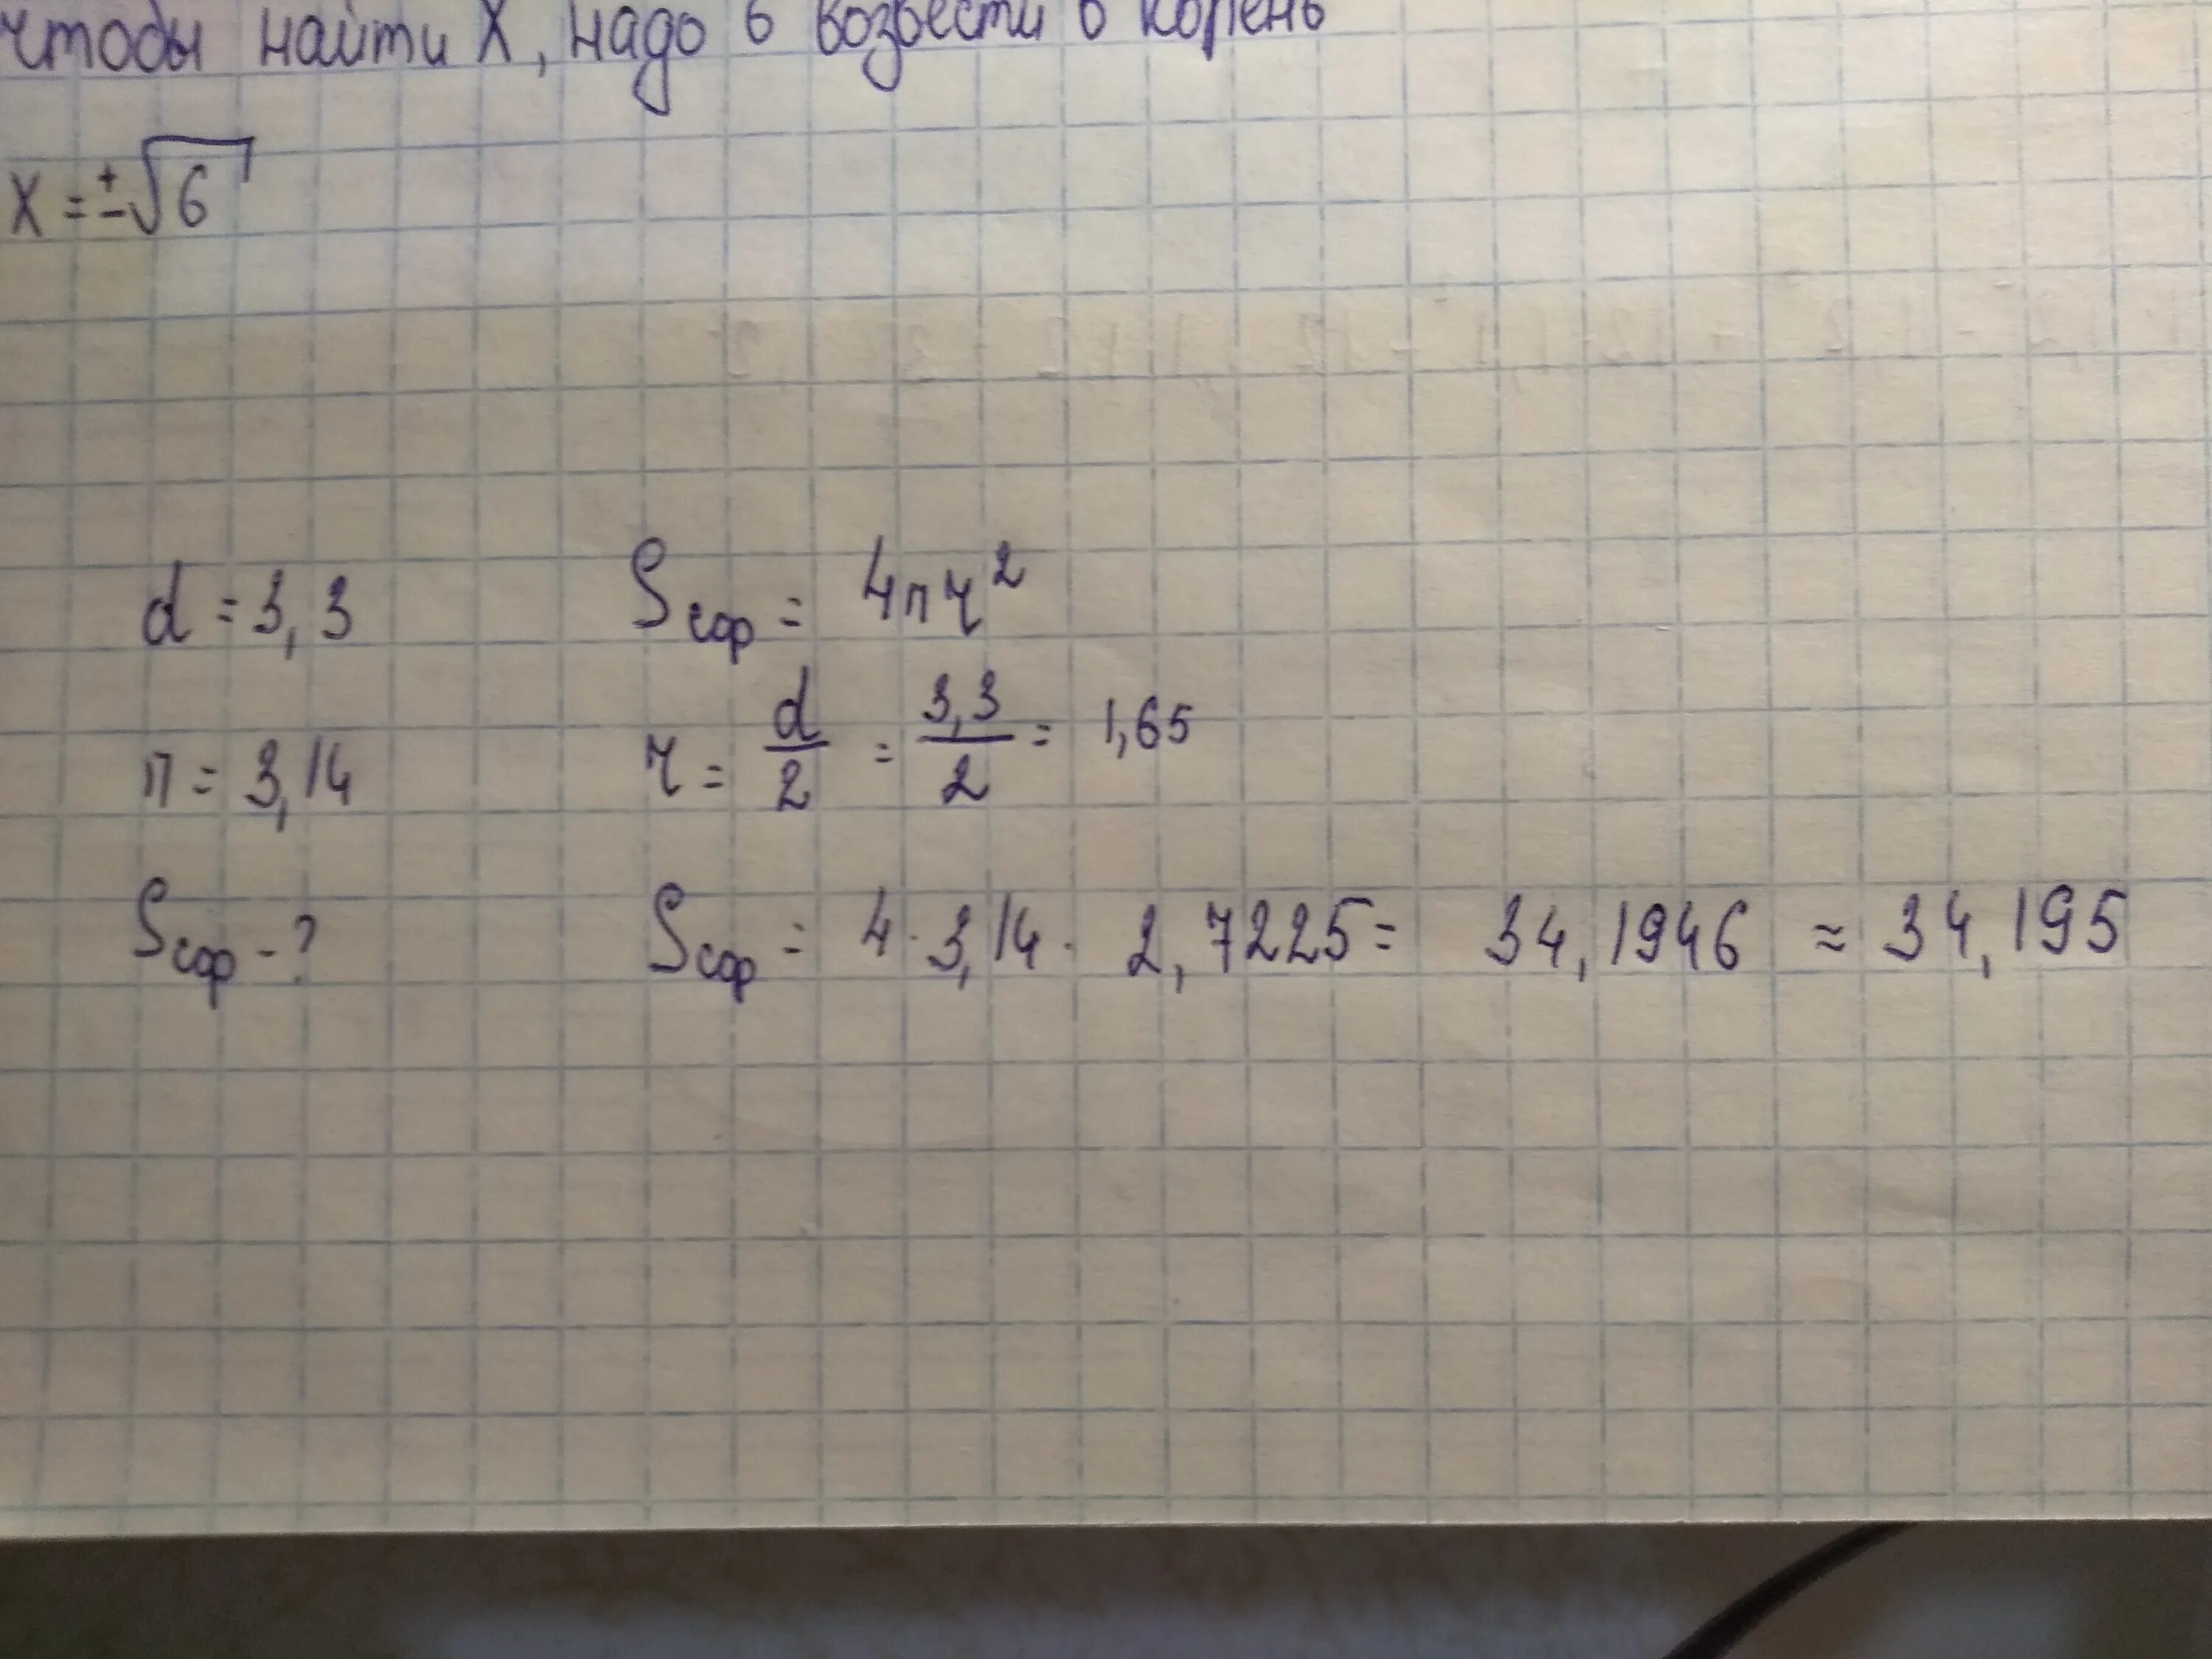 чтобы найти X, надо 6 возвести в корень
X = ±√6
d = 3,3
Sсфр = 4пr²
п = 3,14
r = d/2 = 3,3/2 = 1,65
Sсфр - ?
Sсфр = 4 · 3,14 · 2,7225 = 34,1946 ≈ 34,195